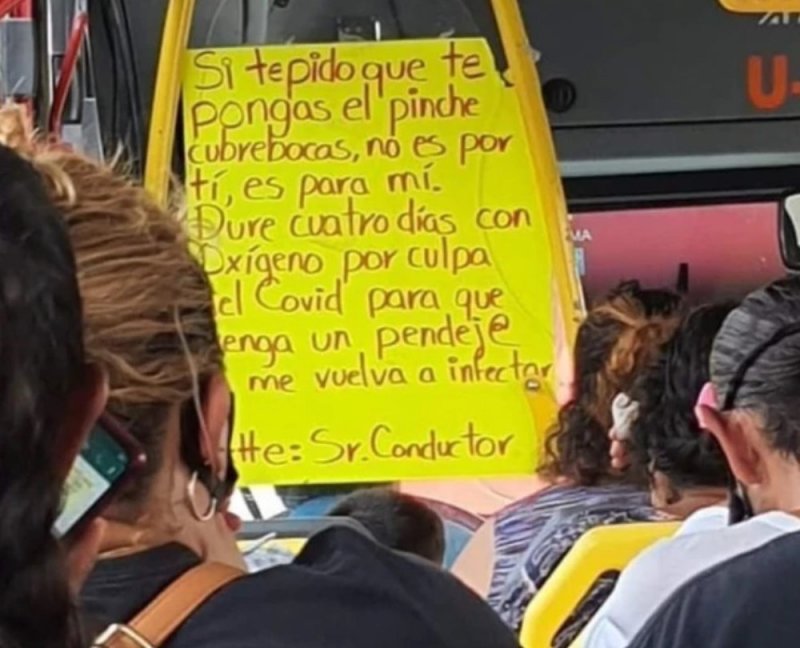 Si te pido que te
pongas el pinche
cubrebocas, no es por
tí, es para mí.
Dure cuatro días con
Oxígeno por culpa
el Covid para que
enga un pendeje
me vuelva a infectar
tte: Sr. Conductor
U-
MA